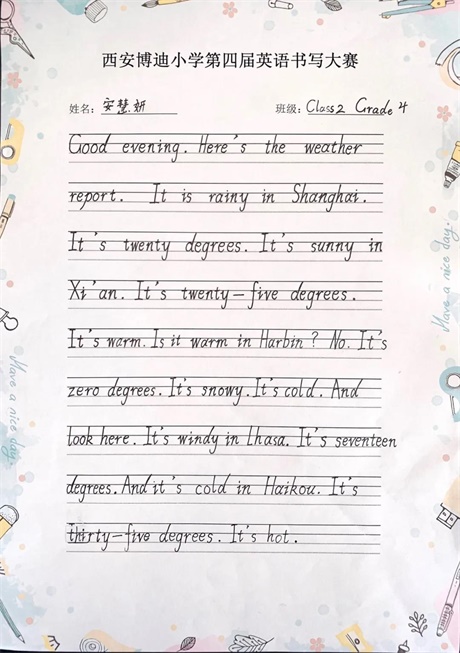 西安博迪小学第四届英语书写大赛
姓名: 安慧妍 班级: Class2 Grade 4
Good evening. Here's the weather
report. It is rainy in Shanghai.
It's twenty degrees. It's sunny in
Xi'an. It's twenty-five degrees.
It's warm. Is it warm in Harbin? No. It's
zero degrees. It's snowy. It's cold. And
look here. It's windy in Lhasa. It's seventeen
degrees. And it's cold in Haikou. It's
thirty-five degrees. It's hot.
Have a nice day.
Have a nice day.